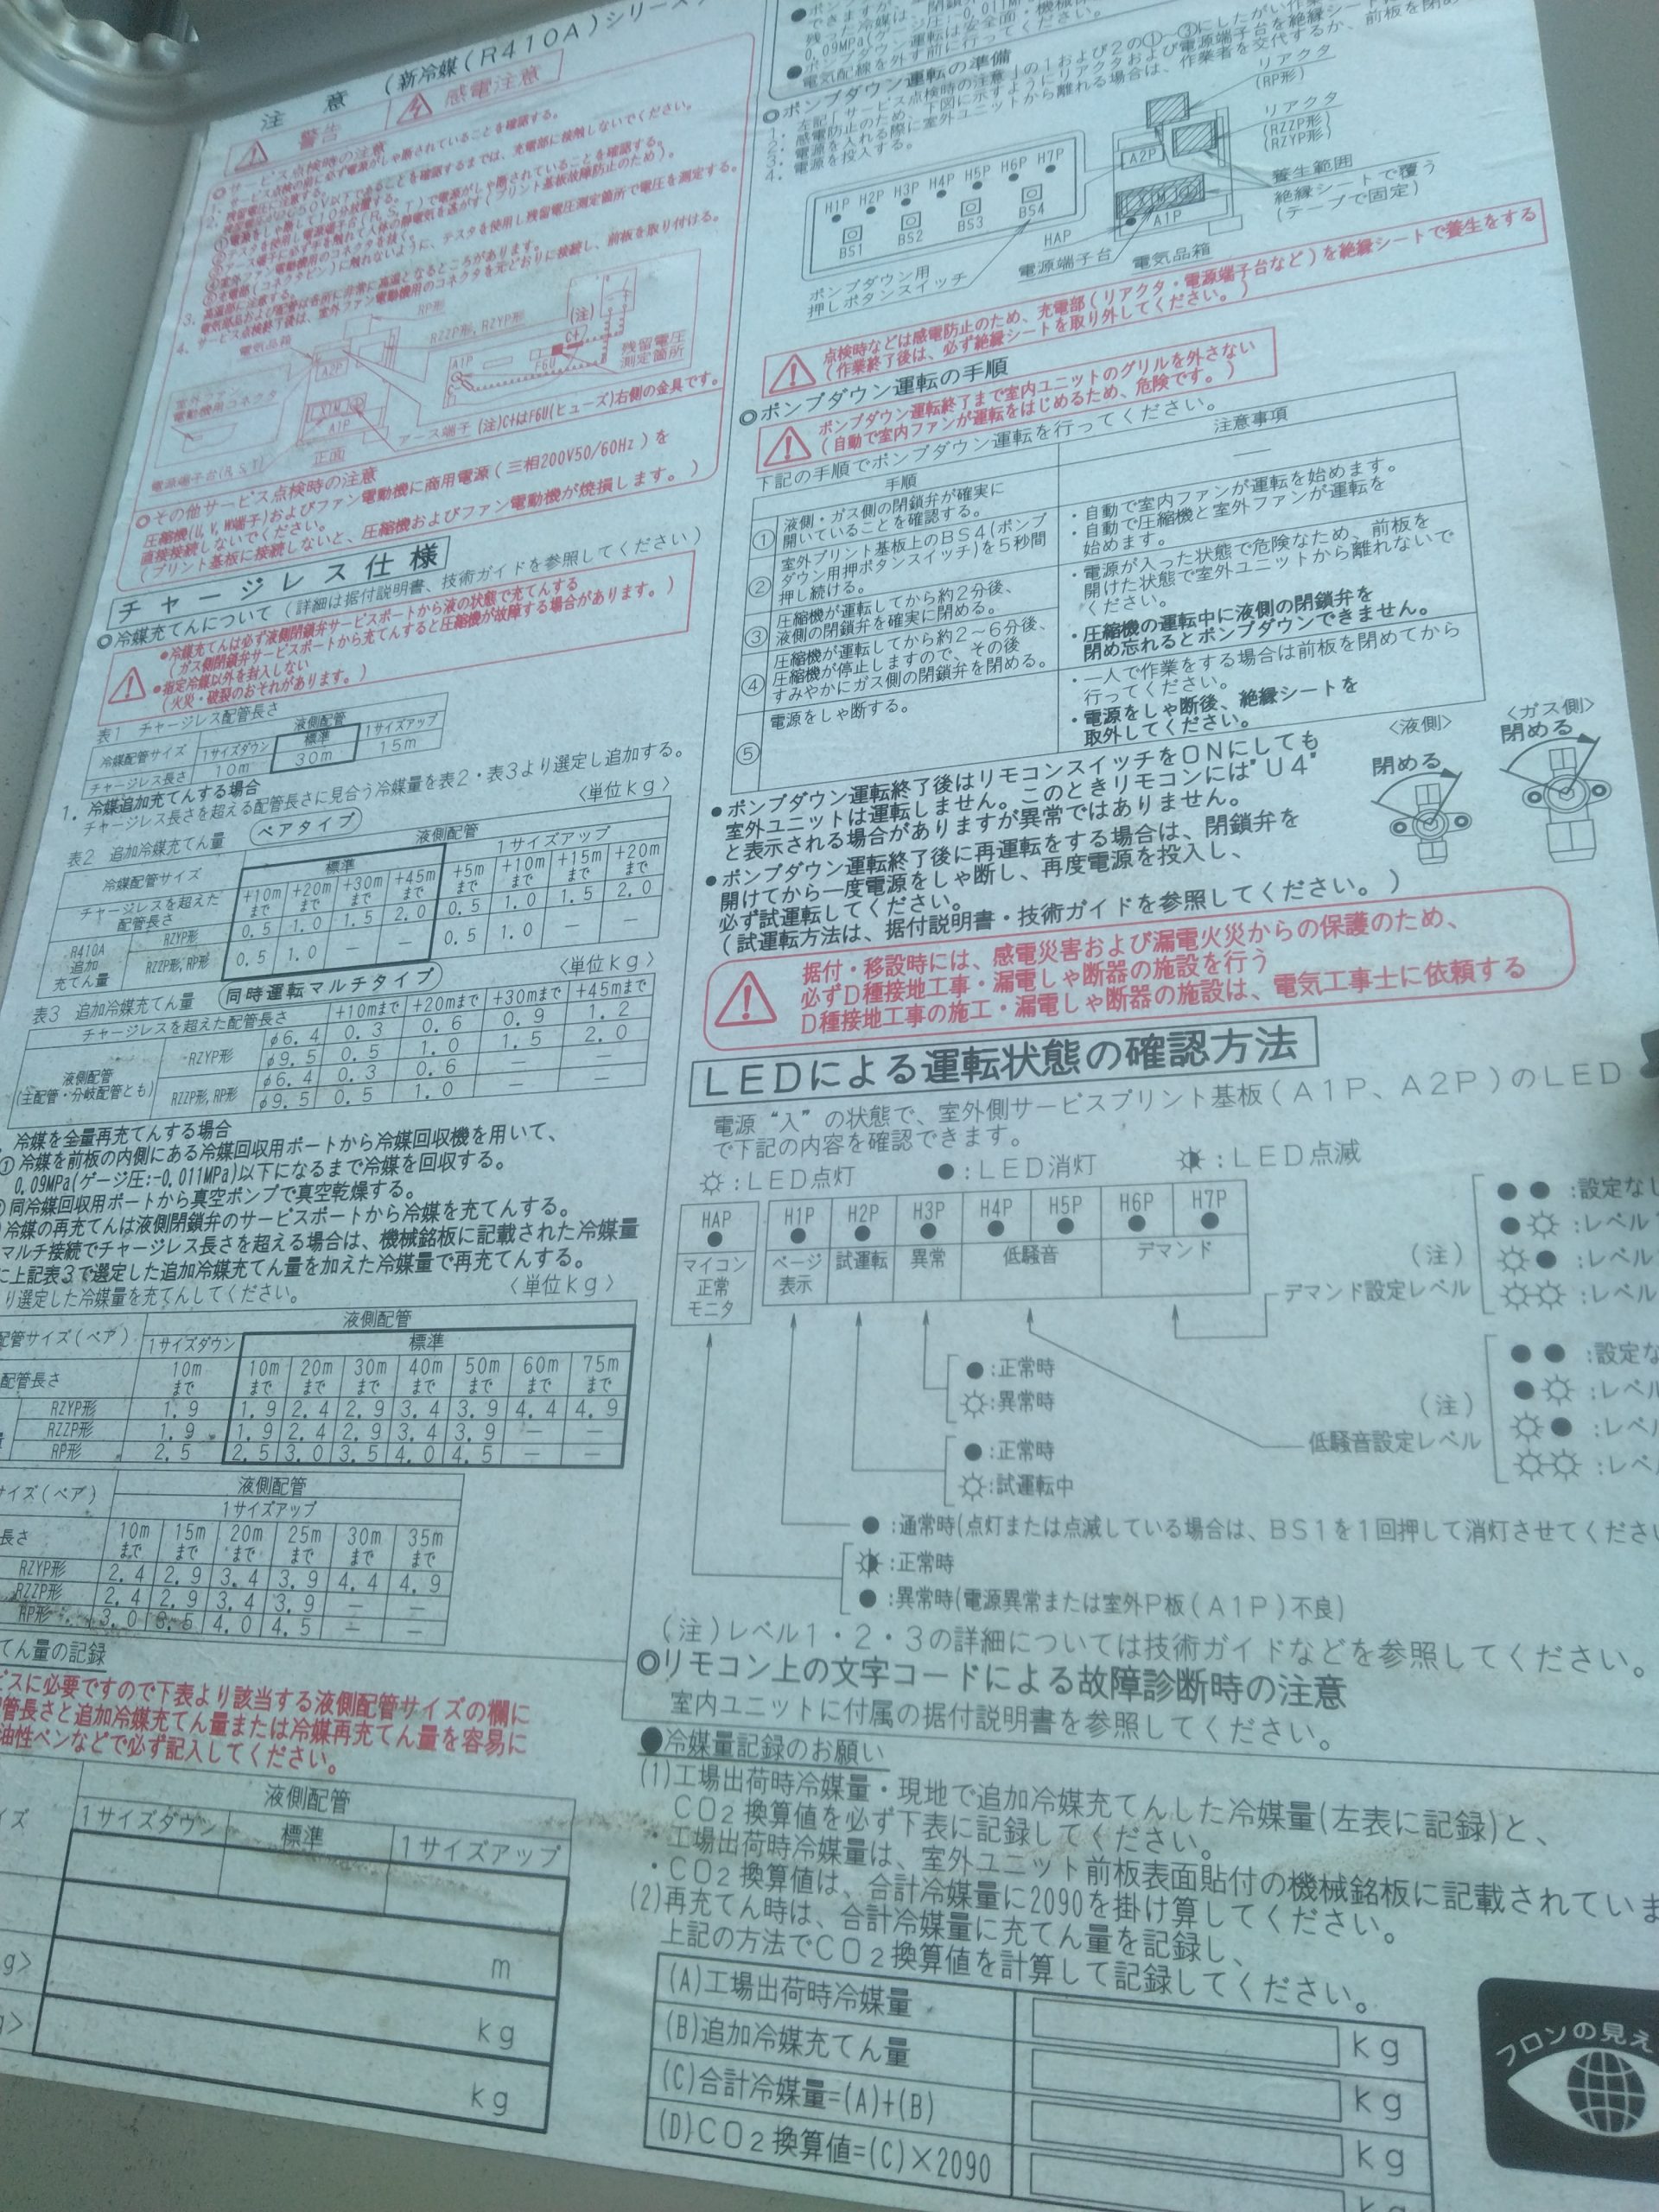 注 意 (新冷媒(R410A)シリーズ
警告 感電注意
◎サービス点検時の注意
1. サービス点検の前に必ず電源がしゃ断されていることを確認する。
2. 残留電圧に注意する。
残留電圧がDC50V以下であることを確認するまでは、充電部に接触しないでください。
3. 高温部に注意する。
電気部品および配管は各所に非常に高温となるところがあります。
4. サービス点検終了後は、室外ファン電動機用のコネクタを元どおりに接続し、前板を取り付ける。
電気品箱
RP形
RZZP形, RZYP形
(注)
A2P
A1P
F6U
C+
残留電圧
測定箇所
室外ファン
電動機用コネクタ
電源端子台(R,S,T)
正面
アース端子 (注)C+はF6U(ヒューズ)右側の金具です。
◎その他サービス点検時の注意
圧縮機(U,V,W端子)およびファン電動機に商用電源(三相200V50/60Hz)を
直接接続しないでください。
(プリント基板に接続しないと、圧縮機およびファン電動機が焼損します。)
チャージレス仕様
◎冷媒充てんについて(詳細は据付説明書、技術ガイドを参照してください)
●冷媒充てんは必ず液側閉鎖弁サービスポートから液の状態で充てんする
(ガス側閉鎖弁サービスポートから充てんすると圧縮機が故障する場合があります。)
●指定冷媒以外を封入しない
(火災・破裂のおそれがあります。)
表1 チャージレス配管長さ
冷媒配管サイズ 液側配管
1サイズダウン 標準 1サイズアップ
チャージレス長さ 10m 30m 15m
1. 冷媒追加充てんする場合
チャージレス長さを超える配管長さに見合う冷媒量を表2・表3より選定し追加する。
表2 追加冷媒充てん量 ペアタイプ 〈単位kg〉
冷媒配管サイズ 液側配管
標準 1サイズアップ
チャージレスを超えた配管長さ +10mまで +20mまで +30mまで +45mまで +5mまで +10mまで +15mまで +20mまで
R410A追加充てん量 RZYP形 0.5 1.0 1.5 2.0 0.5 1.0 1.5 2.0
RZZP形,RP形 0.5 1.0 － － 0.5 1.0 － －
表3 追加冷媒充てん量 同時運転マルチタイプ 〈単位kg〉
チャージレスを超えた配管長さ +10mまで +20mまで +30mまで +45mまで
液側配管(主配管・分岐配管とも) RZYP形 φ6.4 0.3 0.6 0.9 1.2
φ9.5 0.5 1.0 1.5 2.0
RZZP形,RP形 φ6.4 0.3 0.6 － －
φ9.5 0.5 1.0 － －
冷媒を全量再充てんする場合
①冷媒を前板の内側にある冷媒回収用ポートから冷媒回収機を用いて、
0.09MPa(ゲージ圧:-0.011MPa)以下になるまで冷媒を回収する。
同冷媒回収用ポートから真空ポンプで真空乾燥する。
冷媒の再充てんは液側閉鎖弁のサービスポートから冷媒を充てんする。
マルチ接続でチャージレス長さを超える場合は、機械銘板に記載された冷媒量
に上記表3で選定した追加冷媒充てん量を加えた冷媒量で再充てんする。
り選定した冷媒量を充てんしてください。 〈単位kg〉
配管サイズ(ペア) 液側配管
1サイズダウン 標準
配管長さ 10mまで 10mまで 20mまで 30mまで 40mまで 50mまで 60mまで 75mまで
RZYP形 1.9 1.9 2.4 2.9 3.4 3.9 4.4 4.9
RZZP形 1.9 1.9 2.4 2.9 3.4 3.9 － －
RP形 2.5 2.5 3.0 3.5 4.0 4.5 － －
サイズ(ペア) 液側配管
1サイズアップ
長さ 10mまで 15mまで 20mまで 25mまで 30mまで 35mまで
RZYP形 2.4 2.9 3.4 3.9 4.4 4.9
RZZP形 2.4 2.9 3.4 3.9 － －
RP形 3.0 3.5 4.0 4.5 － －
てん量の記録
ビスに必要ですので下表より該当する液側配管サイズの欄に
管長さと追加冷媒充てん量または冷媒再充てん量を容易に
油性ペンなどで必ず記入してください。
イズ 液側配管
1サイズダウン 標準 1サイズアップ
m
g> kg
g> kg
できますが、
残った冷媒は、
0.09MPa(ゲージ圧:-0.011MPa
●ポンプダウン運転は安全面・機械保
●電気配線を外す前に行ってください。
◎ポンプダウン運転の準備
1. 左記「サービス点検時の注意」の1および2の①~③にしたがい作業
2. 感電防止のため、下図に示すようにリアクタおよび電源端子台を絶縁シート
3. 電源を入れる際に室外ユニットから離れる場合は、作業者を交代するか、前板を閉め
4. 電源を投入する。
H1P H2P H3P H4P H5P H6P H7P
BS1 BS2 BS3 BS4
ポンプダウン用
押しボタンスイッチ
HAP
電源端子台
電気品箱
A2P
A1P
リアクタ
(RP形)
リアクタ
(RZZP形)
(RZYP形)
養生範囲
絶縁シートで覆う
(テープで固定)
点検時などは感電防止のため、充電部(リアクタ・電源端子台など)を絶縁シートで養生をする
(作業終了後は、必ず絶縁シートを取り外してください。)
◎ポンプダウン運転の手順
ポンプダウン運転終了まで室内ユニットのグリルを外さない
(自動で室内ファンが運転をはじめるため、危険です。)
下記の手順でポンプダウン運転を行ってください。
手順 注意事項
① 液側・ガス側の閉鎖弁が確実に
開いていることを確認する。
－
② 室外プリント基板上のBS4(ポンプ
ダウン用押ボタンスイッチ)を5秒間
押し続ける。
・自動で室内ファンが運転を始めます。
・自動で圧縮機と室外ファンが運転を
始めます。
・電源が入った状態で危険なため、前板を
開けた状態で室外ユニットから離れないで
ください。
③ 圧縮機が運転してから約2分後、
液側の閉鎖弁を確実に閉める。
・圧縮機の運転中に液側の閉鎖弁を
閉め忘れるとポンプダウンできません。
④ 圧縮機が運転してから約2～6分後、
圧縮機が停止しますので、その後
すみやかにガス側の閉鎖弁を閉める。
・一人で作業をする場合は前板を閉めてから
行ってください。
⑤ 電源をしゃ断する。
・電源をしゃ断後、絶縁シートを
取外してください。
〈液側〉 〈ガス側〉
閉める 閉める
●ポンプダウン運転終了後はリモコンスイッチをONにしても
室外ユニットは運転しません。このときリモコンには"U4"
と表示される場合がありますが異常ではありません。
●ポンプダウン運転終了後に再運転をする場合は、閉鎖弁を
開けてから一度電源をしゃ断し、再度電源を投入し、
必ず試運転してください。
(試運転方法は、据付説明書・技術ガイドを参照してください。)
据付・移設時には、感電災害および漏電火災からの保護のため、
必ずD種接地工事・漏電しゃ断器の施設を行う
D種接地工事の施工・漏電しゃ断器の施設は、電気工事士に依頼する
LEDによる運転状態の確認方法
電源“入”の状態で、室外側サービスプリント基板(A1P、A2P)のLED
で下記の内容を確認できます。
:LED点灯 ●:LED消灯 :LED点滅
HAP H1P H2P H3P H4P H5P H6P H7P
マイコン正常モニタ ページ表示 試運転 異常 低騒音 デマンド
(注)
デマンド設定レベル
●● :設定なし
:レベル
:レベル
:レベル
(注)
低騒音設定レベル
●● :設定な
:レベル
:レベ
:レベ
●:正常時
:異常時
●:正常時
:試運転中
●:通常時(点灯または点滅している場合は、BS1を1回押して消灯させてくださ
:正常時
●:異常時(電源異常または室外P板(A1P)不良)
(注)レベル1・2・3の詳細については技術ガイドなどを参照してください。
◎リモコン上の文字コードによる故障診断時の注意
室内ユニットに付属の据付説明書を参照してください。
●冷媒量記録のお願い
(1)工場出荷時冷媒量・現地で追加冷媒充てんした冷媒量(左表に記録)と、
CO2換算値を必ず下表に記録してください。
・工場出荷時冷媒量は、室外ユニット前板表面貼付の機械銘板に記載されていま
・CO2換算値は、合計冷媒量に2090を掛け算してください。
(2)再充てん時は、合計冷媒量に充てん量を記録し、
上記の方法でCO2換算値を計算して記録してください。
(A)工場出荷時冷媒量 kg
(B)追加冷媒充てん量 kg
(C)合計冷媒量=(A)+(B) kg
(D)CO2換算値=(C)×2090 kg
フロンの見え